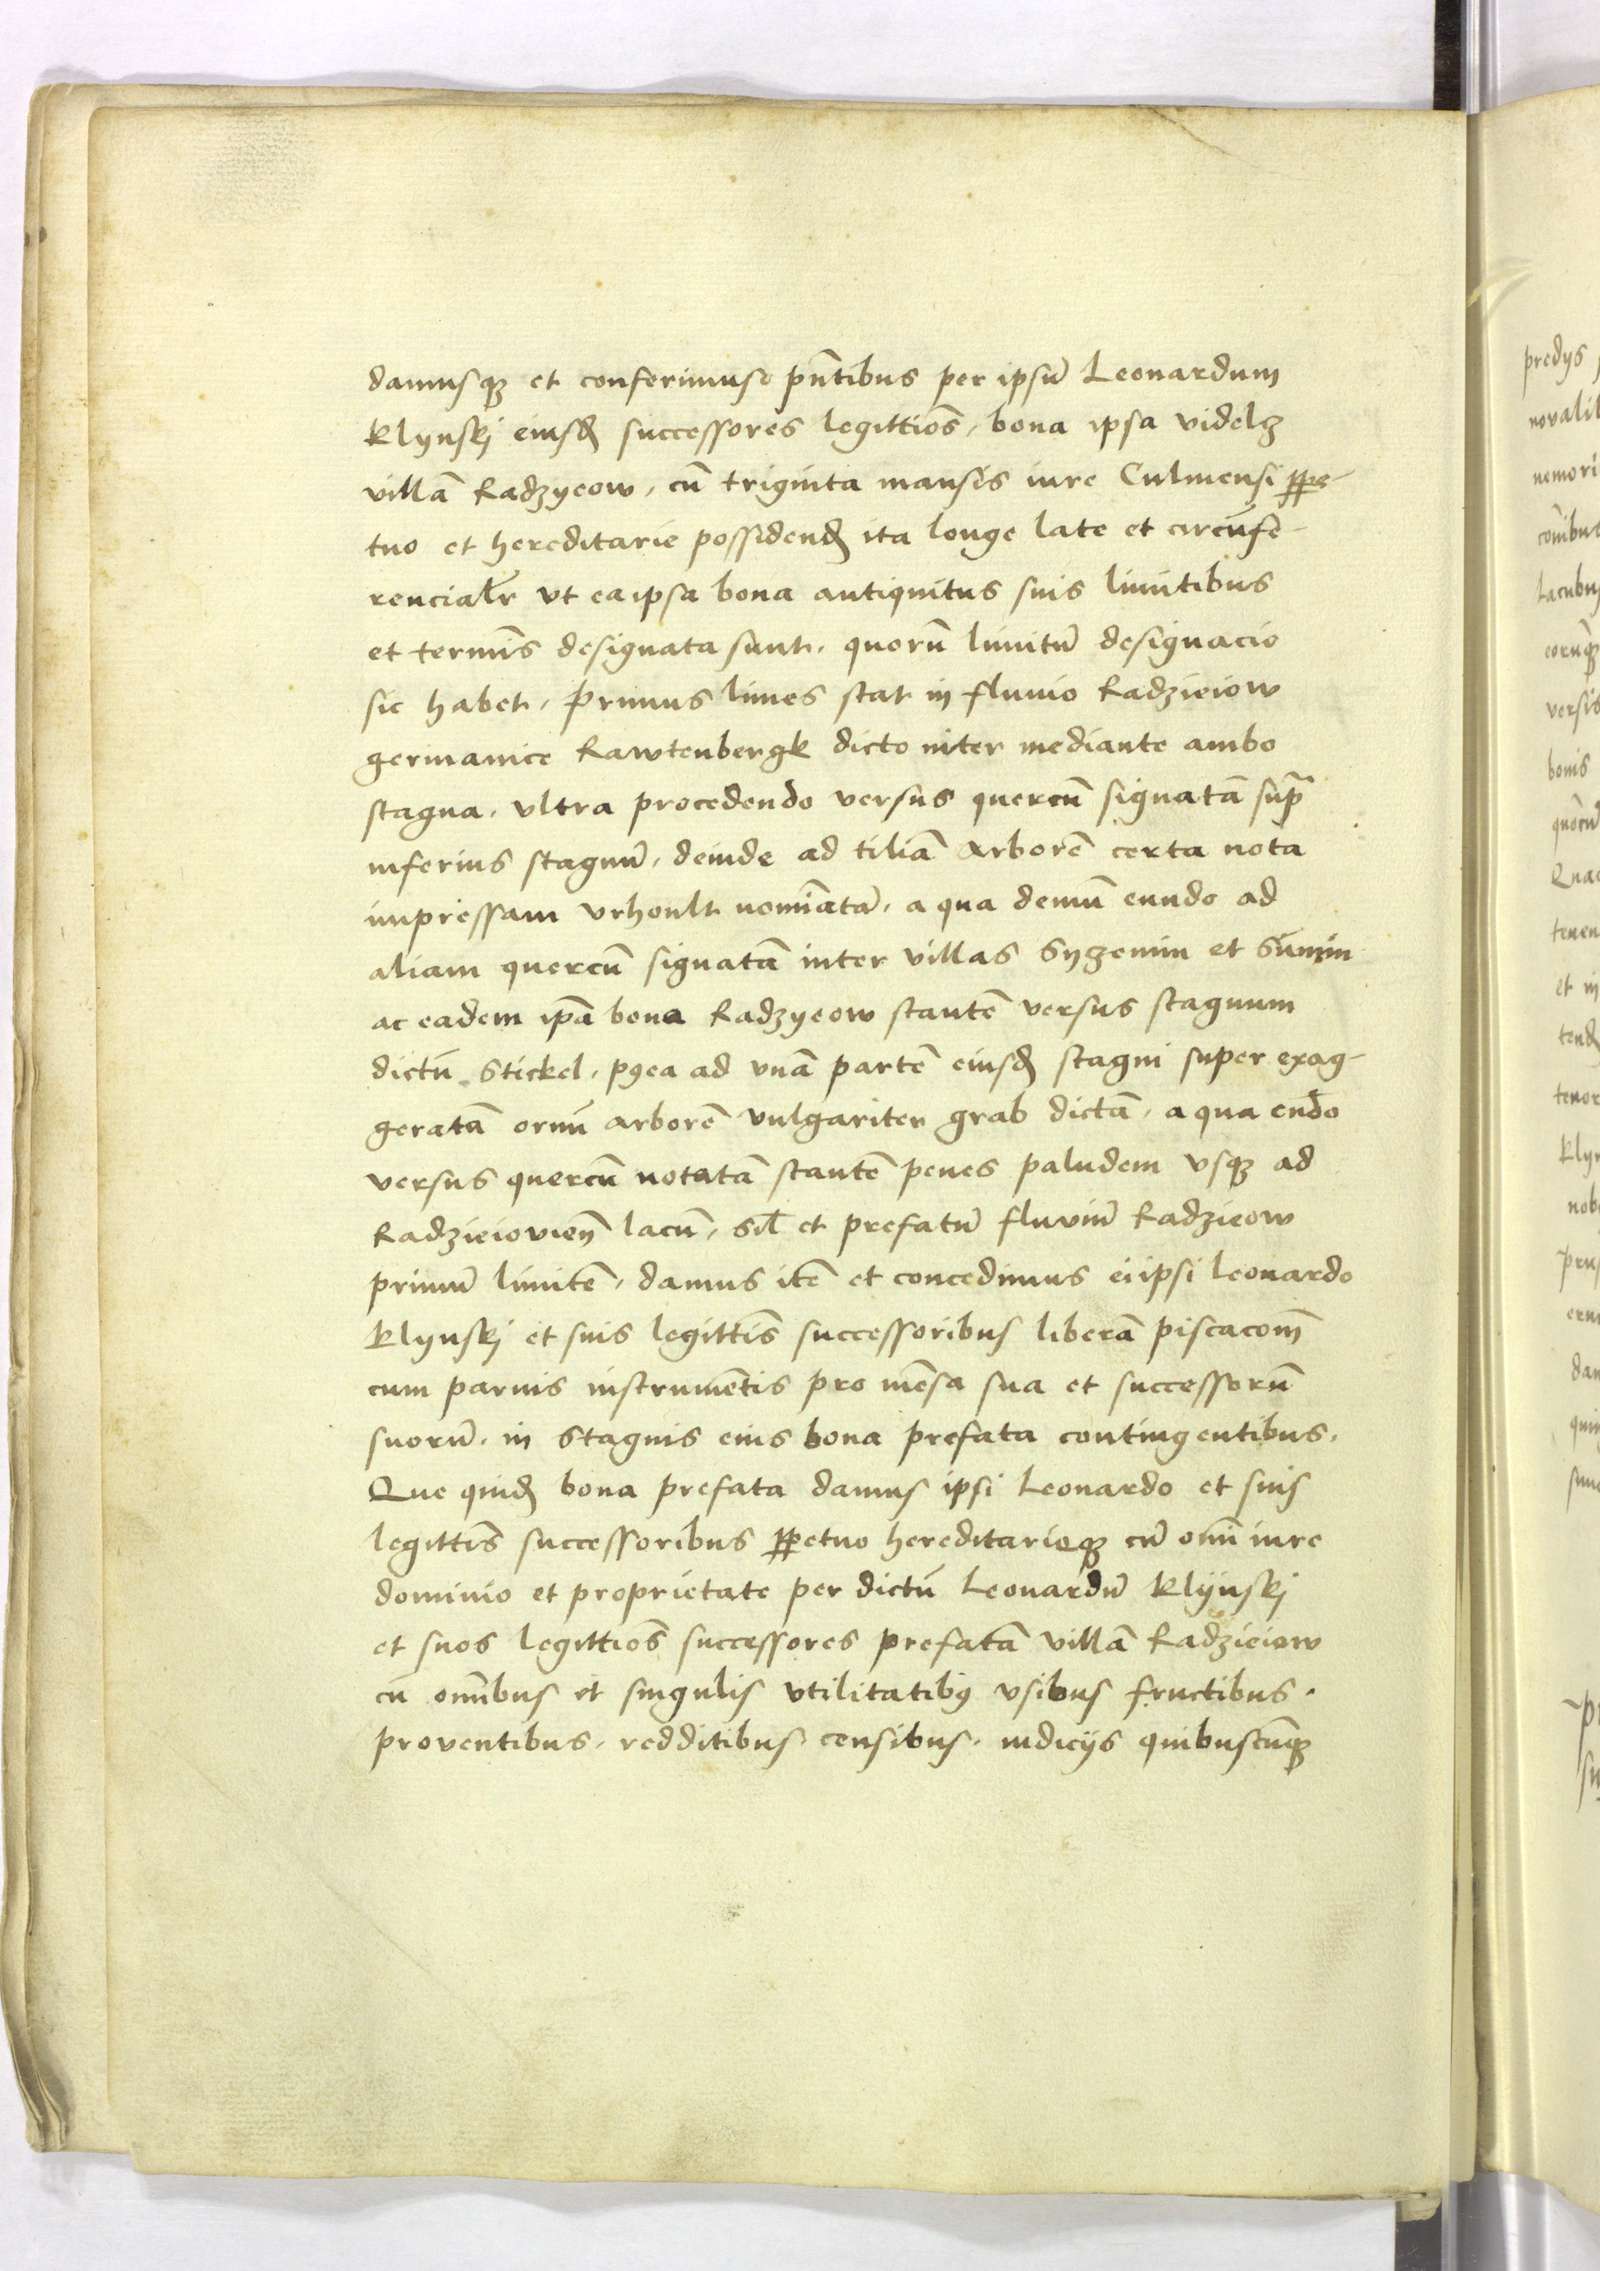 damusqꝫ et conferimus pñtibus per ipsū Leonardum
Klynskj eiusđ successores legittiōs, bona ipsa videlꝫ
villā Radzyeow, cū triginta mansis iure Culmensi ꝑpe-
tuo et hereditarie possidenđ ita longe late et circūfe-
rencialr̄ vt ea ipsa bona antiquitus suis limitibus
et term̄is designata sunt. quorū limitū designacio
sic habet, primus limes stat in fluuio Radzieiow
germanice Rawtenbergk dicto inter mediante ambo
stagna, vltra procedendo versus quercū signatā supra
inferius stagnū, deinde ad tiliā Arborē certa nota
impressam vrhoult nomiātā, a qua demū eundo ad
aliam quercū signatā inter villas Syzemin et Sūmin
ac eadem ipā bona Radzyeow stantē versus stagnum
dictū Stickel, pꝯea ad vnā partē eiusđ stagni super exag-
geratā ornū arborē vulgariter grab dictā, a qua eūdo
versus quercū notatā stantē penes paludem vsqꝫ ad
Radzieiovieñ lacū, sil̄ et prefatū fluviū Radzieow
primū limitē, damus itē et concedimus ei ipsi Leonardo
Klynskj et suis legittīs successoribus liberā piscacom̄
cum paruis instrumētis pro mēsa sua et successorū
suorū, in stagnis eius bona prefata contingentibus.
Que quiđ bona prefata damus ipsi Leonardo et suis
legittīs successoribus ꝑpetuo hereditarieqꝫ cū om̄i iure
dominio et proprietate per dictū Leonardū Klijnskj
et suos legittiōs successores prefatā villā Radzieiow
cū om̄ibus et singulis vtilitatibꝯ vsibus fructibus.
proventibus, redditibus censibus, iudicijs quibuscūqꝫ
predijs
nemori
Lacubus
corūqꝫ
versis
bonis
et in